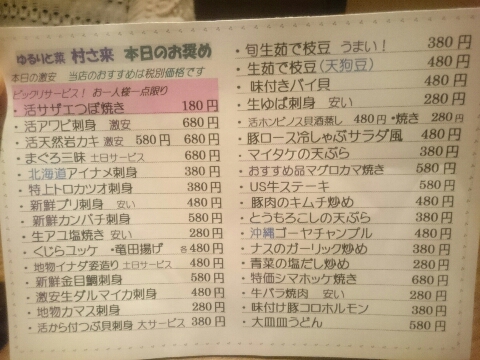 ゆるりと菜 村さ来 本日のお奨め
本日の激安 当店のおすすめは税別価格です
ビックリサービス! お一人様一点限り
・活サザエつぼ焼き 180円
・活アワビ刺身 激安 680円
・活天然岩カキ 激安 580円 680円
・まぐろ三昧 土日サービス 680円
・北海道アイナメ刺身 380円
・特上トロカツオ刺身 380円
・新鮮ブリ刺身 安い 480円
・新鮮カンパチ刺身 580円
・生アユ塩焼き 安い 280円
・くじらコッケ ・竜田揚げ s480円
・地物イナダ姿造り 土日サービス 480円
・新鮮金目鯛刺身 580円
・激安生ダルマイカ刺身 480円
・地物カマス刺身 280円
・活から付つぶ貝刺身 大サービス 380円
・旬生茹で枝豆 うまい! 380円
・生茹で枝豆(天狗豆) 480円
・味付きバイ貝 480円
・生ゆば刺身 安い 280円
・活ホンビノス貝酒蒸し 480円 ・焼き 280円
・豚ロース冷しゃぶサラダ風 480円
・マイタケの天ぷら 380円
・おすすめ品マグロカマ焼き 580円
・US牛ステーキ 580円
・豚肉のキムチ炒め 480円
・とうもろこしの天ぷら 380円
・沖縄ゴーヤチャンプル 480円
・ナスのガーリック炒め 380円
・青菜の塩だし炒め 280円
・特価シマホッケ焼き 680円
・牛バラ焼肉 安い 280円
・味付け豚コロホルモン 380円
・大皿皿うどん 580円